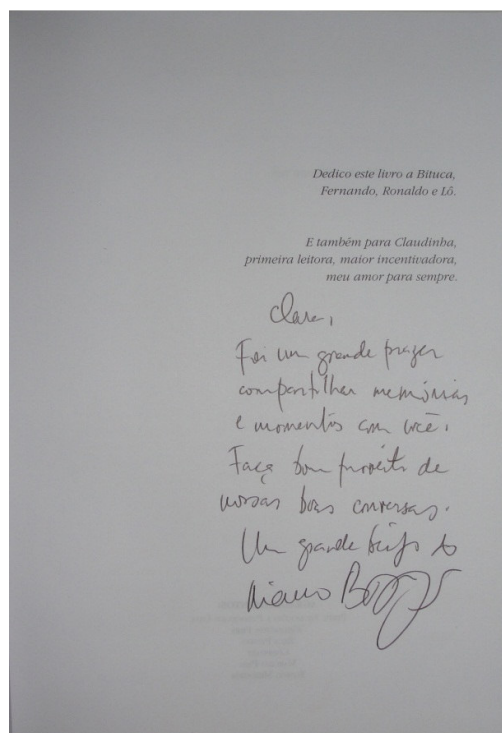 Dedico este livro a Bituca,
Fernando, Ronaldo e Lô.
E também para Claudinha,
primeira leitora, maior incentivadora,
meu amor para sempre.
Clara,
Foi um grande prazer
compartilhar memórias
e momentos com você.
Faça bom proveito de
nossas boas conversas.
Um grande beijo do